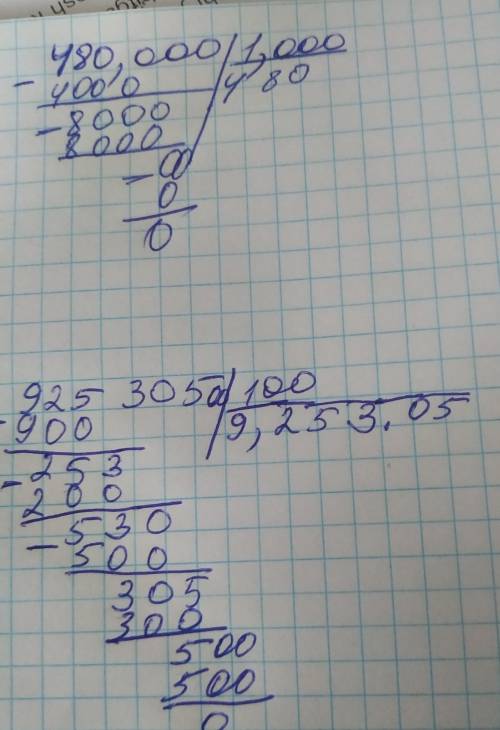 480,000 1,000
- 4000 480
- 8000
8000
- 00
0
0
925 3050 100
- 900 9,253.05
- 253
200
- 530
500
305
300
500
500
0